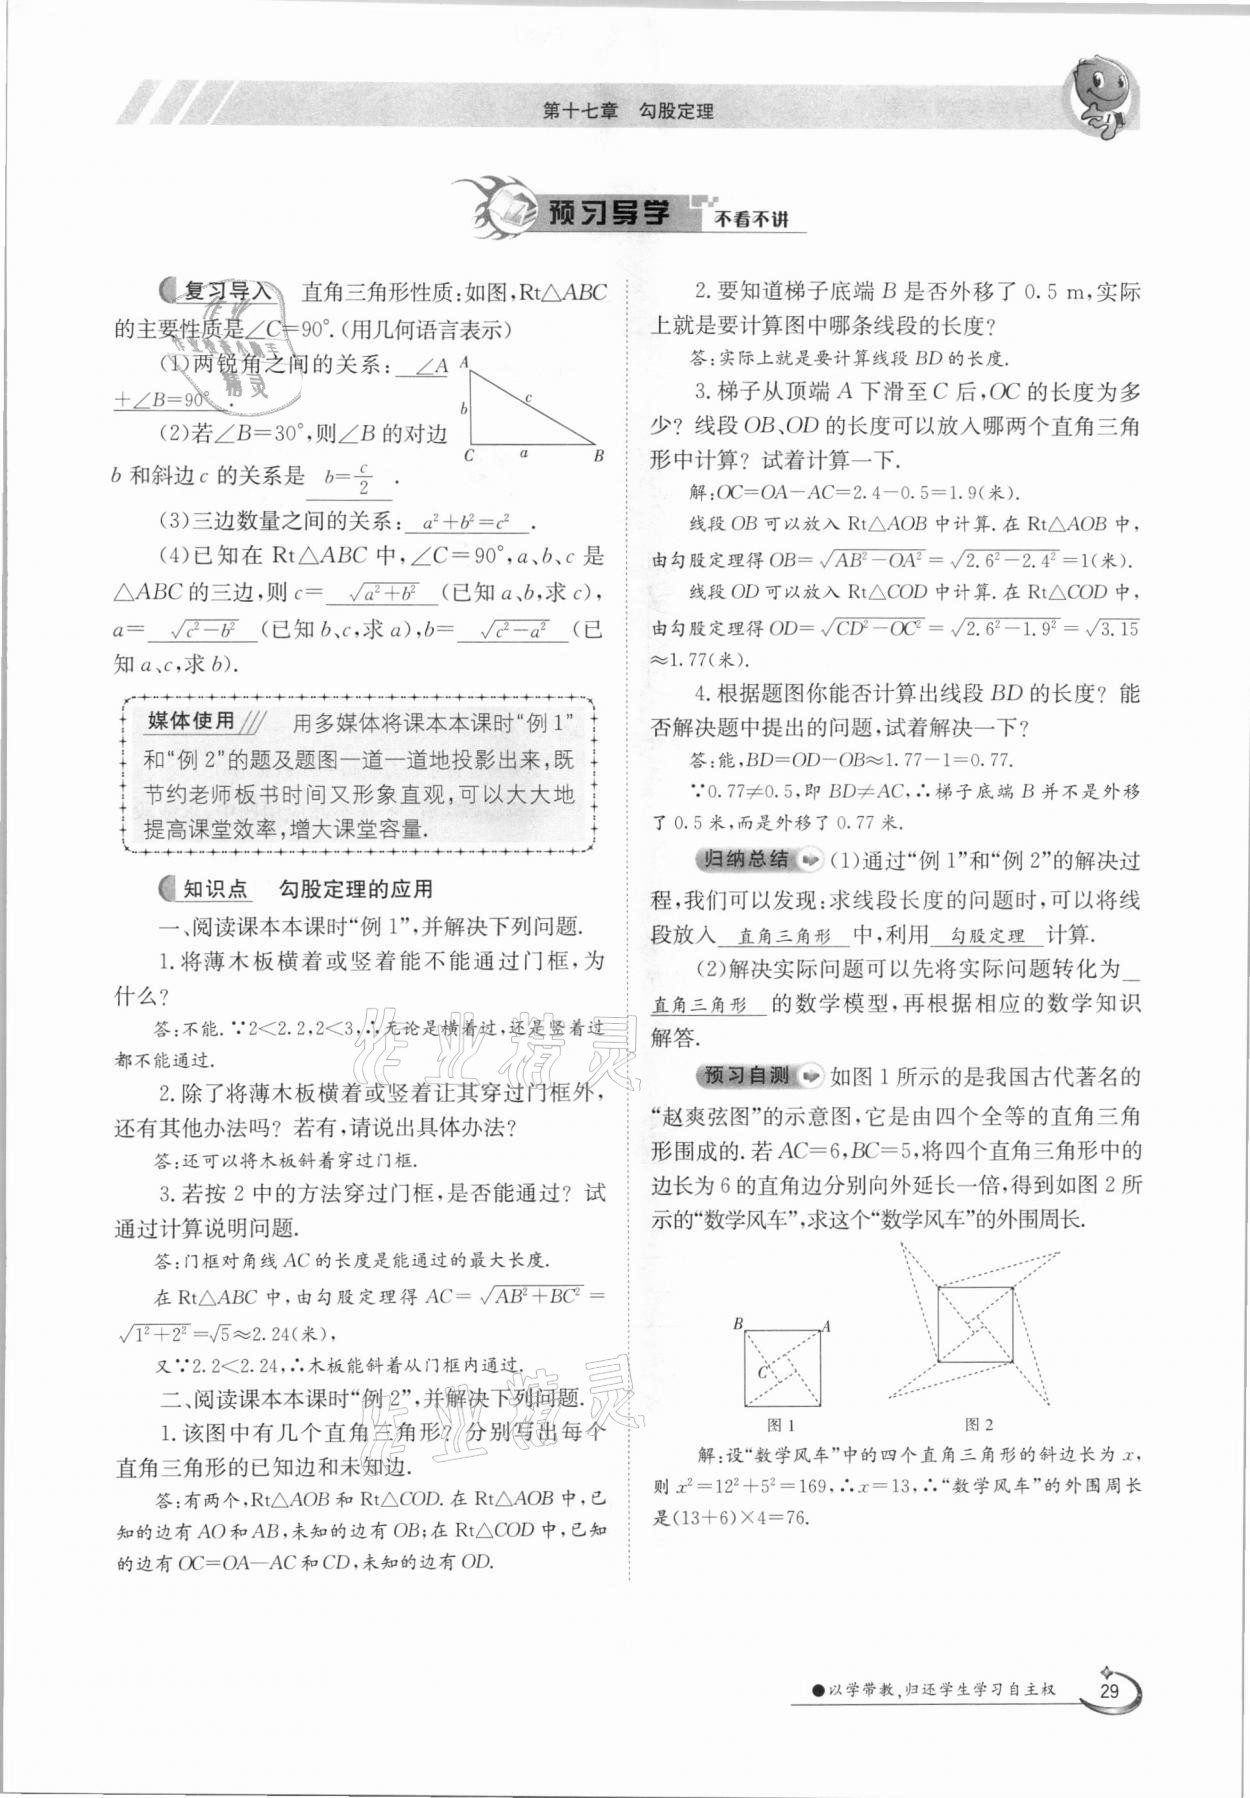 第十七章 勾股定理
预习导学 不看不讲
复习导入 直角三角形性质:如图,Rt△ABC
的主要性质是∠C=90°.(用几何语言表示)
(1)两锐角之间的关系: ∠A
+∠B=90° .
(2)若∠B=30°,则∠B的对边
b和斜边c的关系是 b=c/2 .
A
b
c
C a B
(3)三边数量之间的关系: a²+b²=c² .
(4)已知在Rt△ABC中,∠C=90°,a、b、c是
△ABC的三边,则c= √(a²+b²) (已知a、b,求c),
a= √(c²-b²) (已知b、c,求a),b= √(c²-a²) (已
知a、c,求b).
媒体使用 用多媒体将课本本课时“例1”
和“例2”的题及题图一道一道地投影出来,既
节约老师板书时间又形象直观,可以大大地
提高课堂效率,增大课堂容量.
知识点 勾股定理的应用
一、阅读课本本课时“例1”,并解决下列问题.
1.将薄木板横着或竖着能不能通过门框,为
什么?
答:不能.∵2<2.2,2<3,∴无论是横着过,还是竖着过
都不能通过.
2.除了将薄木板横着或竖着让其穿过门框外,
还有其他办法吗?若有,请说出具体办法?
答:还可以将木板斜着穿过门框.
3.若按2中的方法穿过门框,是否能通过?试
通过计算说明问题.
答:门框对角线AC的长度是能通过的最大长度.
在Rt△ABC中,由勾股定理得AC=√(AB²+BC²)=
√(1²+2²)=√5≈2.24(米),
又∵2.2<2.24,∴木板能斜着从门框内通过.
二、阅读课本本课时“例2”,并解决下列问题.
1.该图中有几个直角三角形?分别写出每个
直角三角形的已知边和未知边.
答:有两个,Rt△AOB和Rt△COD.在Rt△AOB中,已
知的边有AO和AB,未知的边有OB;在Rt△COD中,已知
的边有OC=OA—AC和CD,未知的边有OD.
2.要知道梯子底端B是否外移了0.5 m,实际
上就是要计算图中哪条线段的长度?
答:实际上就是要计算线段BD的长度.
3.梯子从顶端A下滑至C后,OC的长度为多
少?线段OB、OD的长度可以放入哪两个直角三角
形中计算?试着计算一下.
解:OC=OA-AC=2.4-0.5=1.9(米).
线段OB可以放入Rt△AOB中计算.在Rt△AOB中,
由勾股定理得OB=√(AB²-OA²)=√(2.6²-2.4²)=1(米).
线段OD可以放入Rt△COD中计算.在Rt△COD中,
由勾股定理得OD=√(CD²-OC²)=√(2.6²-1.9²)=√3.15
≈1.77(米).
4.根据题图你能否计算出线段BD的长度?能
否解决题中提出的问题,试着解决一下?
答:能,BD=OD-OB≈1.77-1=0.77.
∵0.77≠0.5,即BD≠AC,∴梯子底端B并不是外移
了0.5米,而是外移了0.77米.
归纳总结 (1)通过“例1”和“例2”的解决过
程,我们可以发现:求线段长度的问题时,可以将线
段放入 直角三角形 中,利用 勾股定理 计算.
(2)解决实际问题可以先将实际问题转化为
直角三角形 的数学模型,再根据相应的数学知识
解答.
预习自测 如图1所示的是我国古代著名的
“赵爽弦图”的示意图,它是由四个全等的直角三角
形围成的.若AC=6,BC=5,将四个直角三角形中的
边长为6的直角边分别向外延长一倍,得到如图2所
示的“数学风车”,求这个“数学风车”的外围周长.
B A
C
图1 图2
解:设“数学风车”中的四个直角三角形的斜边长为x,
则x²=12²+5²=169,∴x=13,∴“数学风车”的外围周长
是(13+6)×4=76.
●以学带教,归还学生学习自主权
29
作业精灵
作业精灵